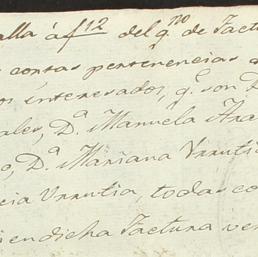 alla á f 12 del q.no de Factu
s contas pertenencias a
os interesados, q.e son D
ales, D.a Manuela Ara
o, D.a Mariana Urruti
cia Urrutia, todas co
iendicha Factura ver